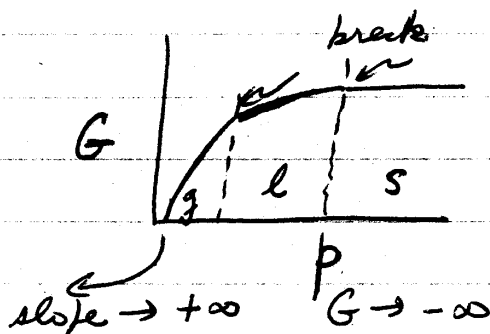 break
G
g l s
p
slope → +∞ G → -∞